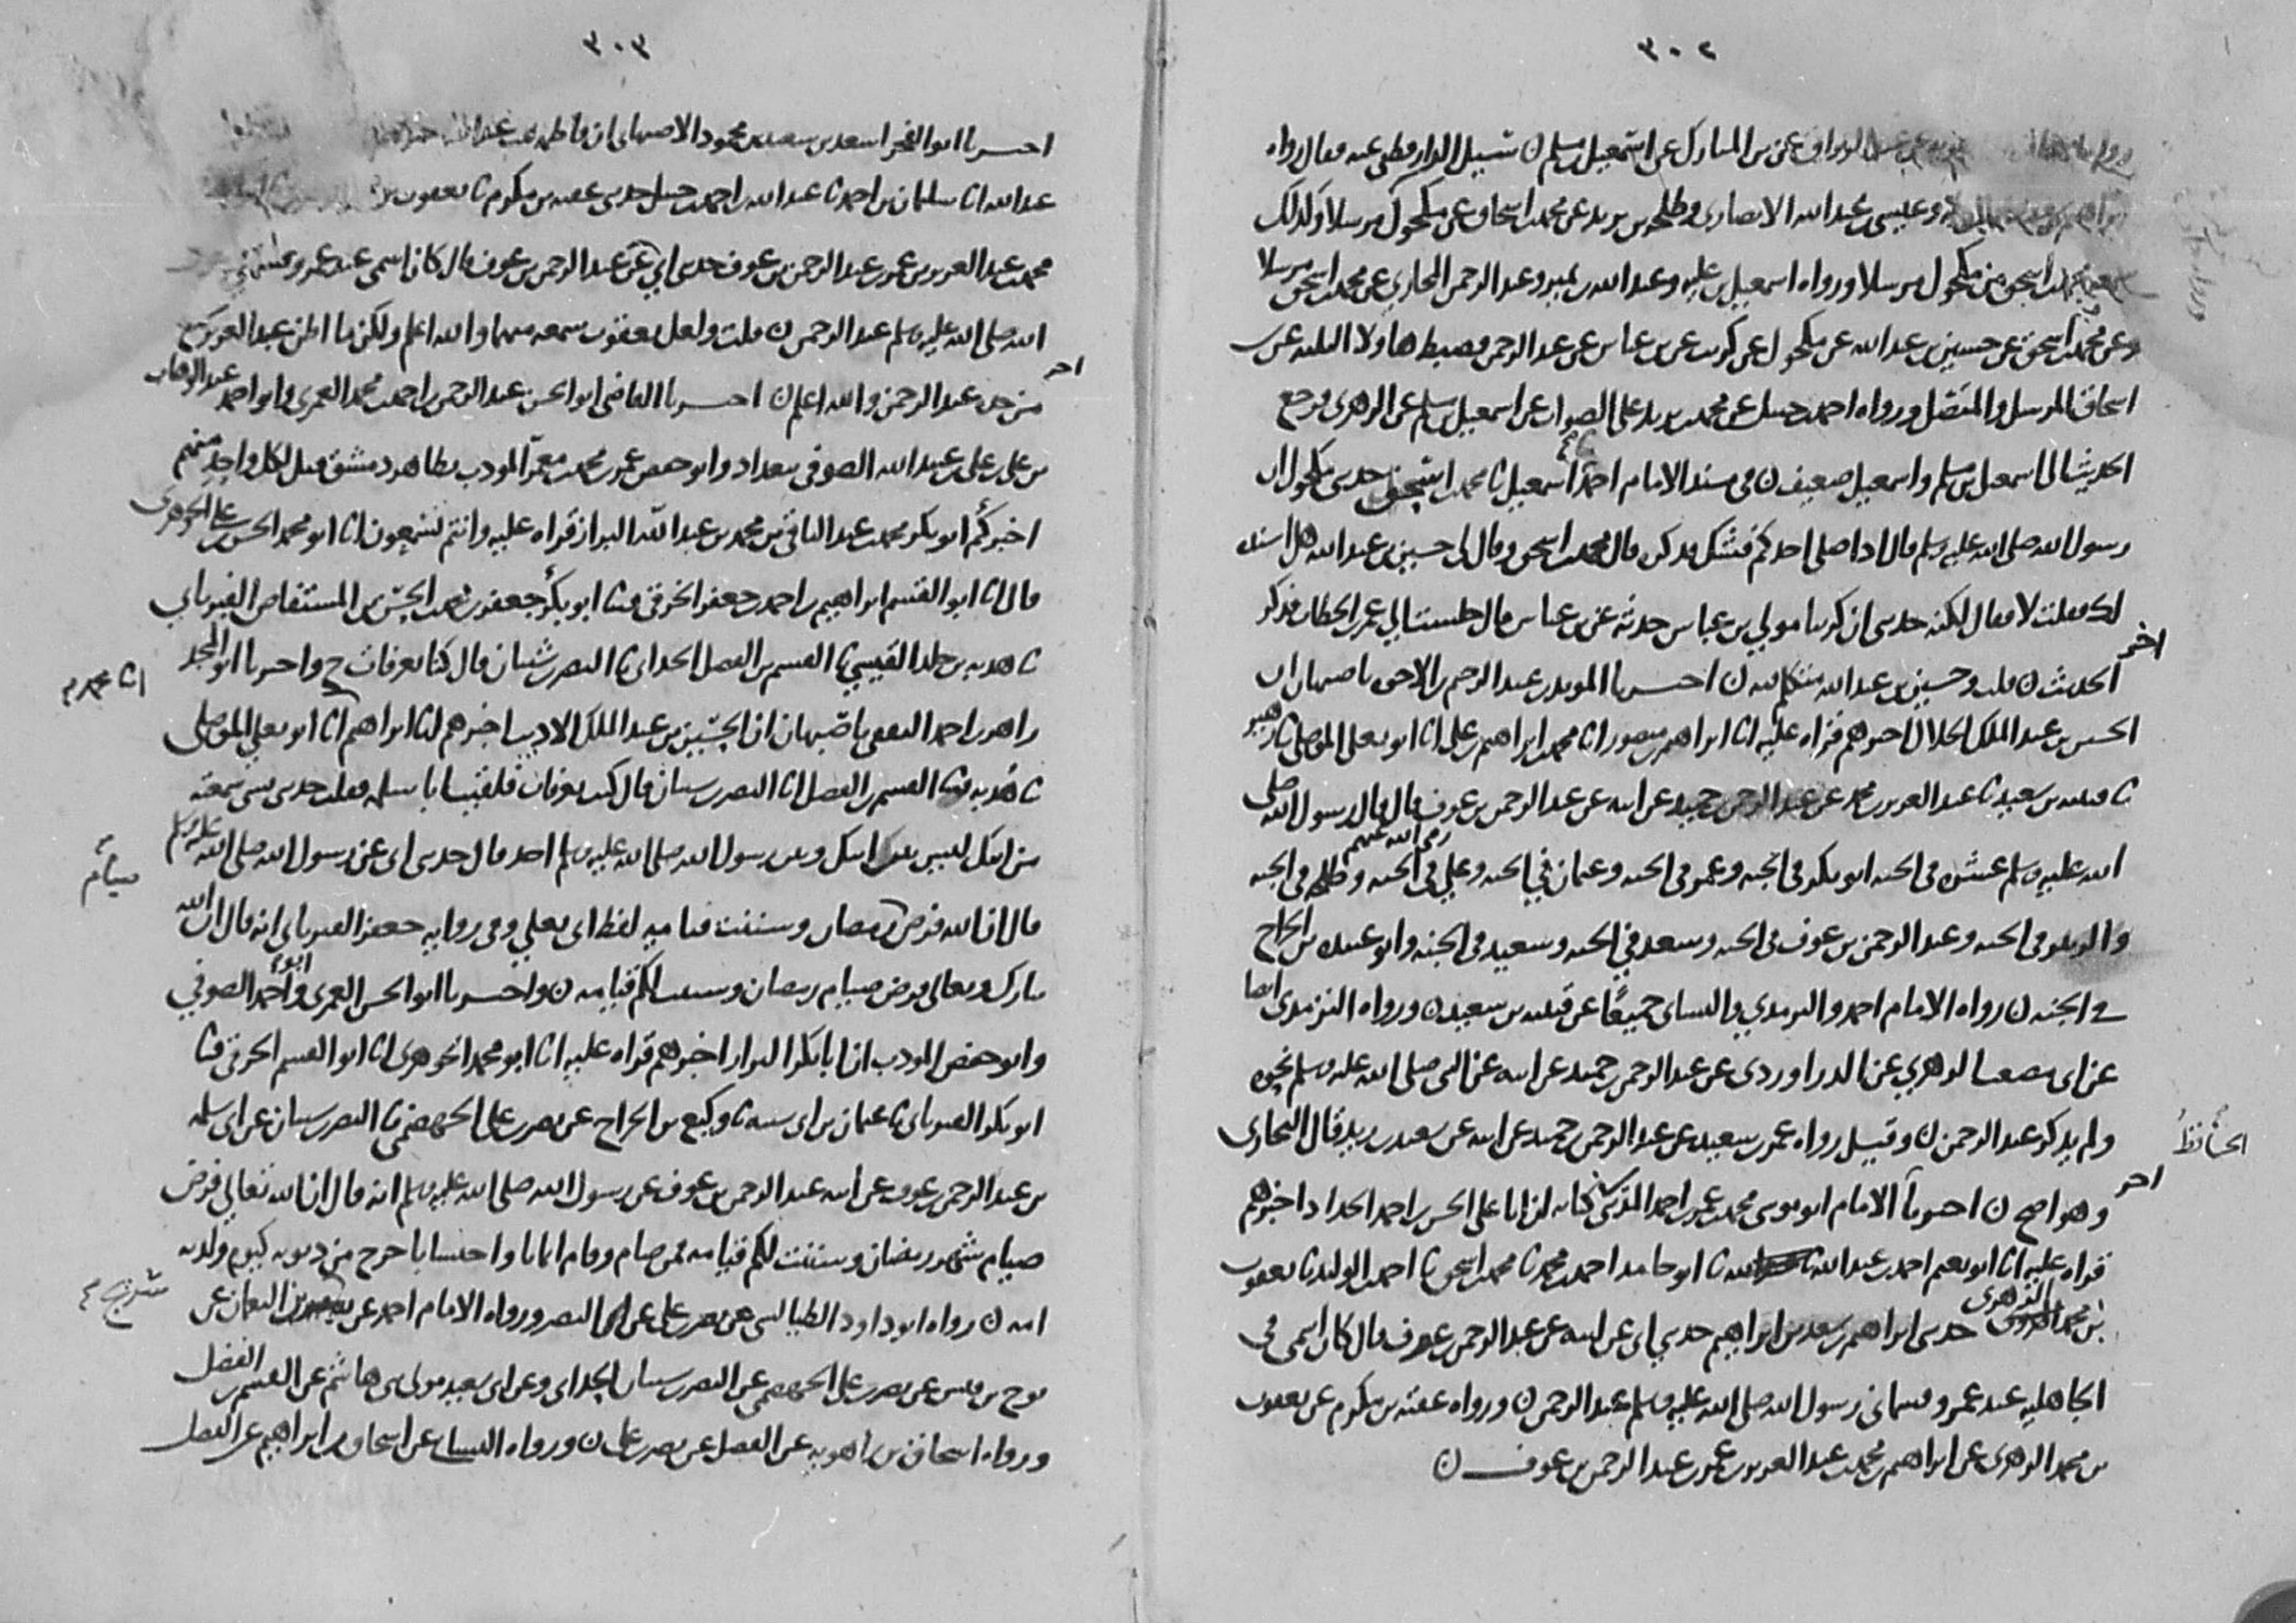 ٣٠٢
عن بن المبارك عن اسمعيل بن مسلم ن سيل الدارقطني عنه فقال رواه
وعيسى بن عبد الله الانصاري وطلحه بن يزيد عن محمد بن اسحاق عن مكحول مرسلا وكذلك
محمد بن اسحق من مكحول مرسلا ورواه اسمعيل بن عليه وعبد الله بن نمير وعبد الرحمن المحاربي عن محمد بن اسحق مرسلا
وعن محمد بن اسحق عن حسين بن عبد الله عن مكحول عن كريب عن بن عباس عن عبد الرحمن فضبط هاولا الثلثه عن بن
اسحاق المرسل والمتصل ورواه احمد بن حنبل عن محمد بن يزيد عن اسمعيل بن مسلم عن الزهري فرجع
الحديث الى اسمعيل بن مسلم واسمعيل ضعيف ن في مسند الامام احمد اسمعيل ثا محمد بن اسحق حدثني مكحول ان
رسول الله صلى الله عليه وسلم قال اذا صلى احدكم فشك فذكر قال محمد بن اسحق وقال لي حسين بن عبد الله هل اسنده
لك فقلت لا فقال لكنه حدثني ان كريبا مولى بن عباس حدثه عن بن عباس قال جلست الى عمر بن الخطاب فذكر
اخر
الحديث ن قلت وحسين بن عبد الله متكلم فيه ن اخبرنا المويد بن عبد الرحيم بن الاخوه باصبهان ان
الحسين بن عبد الملك الخلال اخبرهم قراه عليه انا ابراهيم بن منصور انا محمد بن ابراهيم بن علي انا ابو يعلى الموصلي ثا زهير
ثا قتيبه بن سعيد ثا عبد العزيز بن محمد عن عبد الرحمن بن حميد عن ابيه عن عبد الرحمن بن عوف قال قال رسول الله صلى
الله عليه وسلم عشره في الجنه ابو بكر في الجنه وعمر في الجنه وعثمان في الجنه وعلي في الجنه وطلحه في الجنه
رضي الله عنهم
والزبير في الجنه وعبد الرحمن بن عوف في الجنه وسعد في الجنه وسعيد في الجنه وابو عبيده بن الجراح
في الجنه ن رواه الامام احمد والترمذي والنساي جميعًا عن قتيبه بن سعيد ن ورواه الترمذي ايضا
عن ابي مصعب الزهري عن الدراوردي عن عبد الرحمن بن حميد عن ابيه عن النبي صلى الله عليه وسلم نحوه
ولم يذكر عبد الرحمن ن وقيل رواه عمر بن سعيد عن عبد الرحمن بن حميد عن ابيه عن سعيد بن زيد قال البخاري
الحافظ
اخر
وهو اصح ن اخبرنا الامام ابو موسى محمد بن عمر بن احمد المديني كتابه ان ابا علي الحسن بن احمد الحداد اخبرهم
قراه عليه انا ابو نعيم احمد بن عبد الله ثا ابو حامد احمد بن محمد ثا محمد بن اسحق ثا احمد بن الوليد ثا يعقوب
بن محمد الزهري حدثني ابراهيم بن سعد بن ابراهيم حدثني ابي عن ابيه عن عبد الرحمن بن عوف قال كان اسمي في
الجاهليه عبد عمرو فسماني رسول الله صلى الله عليه وسلم عبد الرحمن ن ورواه عقبه بن مكرم عن يعقوب
بن محمد الزهري عن ابراهيم بن محمد بن عبد العزيز بن عمر بن عبد الرحمن بن عوف ن
٣٠٣
اخبرنا ابو الفخر اسعد بن سعيد بن محمود الاصبهاني ان فاطمه بنت عبد الله
عبد الله انا سليمان بن احمد ثا عبد الله بن احمد بن حنبل حدثني عقبه بن مكرم ثا يعقوب بن
محمد بن عبد العزيز بن عمر بن عبد الرحمن بن عوف حدثني ابي عن عبد الرحمن بن عوف قال كان اسمي عبد عمرو فسماني
الله صلى الله عليه وسلم عبد الرحمن ن قلت ولعل يعقوب سمعه منهما والله اعلم ولكن ما اظن عبد العزيز سمع
اخر
من جده عبد الرحمن والله اعلم ن اخبرنا القاضي ابو الحسن عبد الرحمن بن احمد بن محمد العمري وابو احمد عبد الوهاب
بن علي بن علي بن عبيد الله الصوفي ببغداد وابو حفص عمر بن محمد بن معمر المودب بظاهر دمشق قيل لكل واحد منهم
اخبركم ابو بكر محمد بن عبد الباقي بن محمد بن عبد الله البزاز قراه عليه وانتم تسمعون انا ابو محمد الحسن بن علي الجوهري
قال انا ابو القسم ابراهيم بن احمد بن جعفر الخرقي قثا ابو بكر جعفر بن محمد بن الحسن بن المستفاض الفريابي
ثا هدبه بن خلد القيسي ثا القسم بن الفضل الحداني ثا النضر بن شيبان قال كنا بعرفات ح واخبرنا ابو المجد
زاهر بن احمد الثقفي باصبهان ان الحسين بن عبد الملك الاديب اخبرهم انا ابراهيم انا ابو يعلى الموصلي
ثا هدبه قثا القسم بن الفضل انا النضر بن شيبان قال كنت بعرفات فلقيت ابا سلمه فقلت حدثني بشي سمعته
من ابيك ليس بين ابيك وبين رسول الله صلى الله عليه وسلم احد قال حدثني ابي عن رسول الله صلى الله عليه وسلم
صيام
قال ان الله فرض رمضان وسننت قيامه لفظ ابي يعلى وفي روايه جعفر الفريابي انه قال ان الله
تبارك وتعالى فرض صيام رمضان وسننت لكم قيامه ن واخبرنا ابو الحسن العمري وابو احمد الصوفي
وابو حفص المودب ان ابا بكر البزاز اخبرهم قراه عليه انا ابو محمد الجوهري انا ابو القسم الخرقي قثا
ابو بكر الفريابي ثا عثمان بن ابي شيبه ثا وكيع بن الجراح عن نصر بن علي الجهضمي ثا النضر بن شيبان عن ابي سلمه
بن عبد الرحمن بن عوف عن ابيه عبد الرحمن بن عوف عن رسول الله صلى الله عليه وسلم انه قال ان الله تعالى فرض
صيام شهر رمضان وسننت لكم قيامه فمن صام وقام ايمانا واحتسابا خرج من ذنوبه كيوم ولدته
امه ن رواه ابو داود الطيالسي عن نصر بن علي عن النضر ورواه الامام احمد عن سريج بن النعمان عن
نوح بن قيس عن نصر بن علي الجهضمي عن النضر بن شيبان الحداني وعن ابي سعيد مولى بني هاشم عن القسم بن الفضل
ورواه اسحاق بن راهويه عن الفضل عن نصر بن علي ن ورواه النساي عن اسحاق بن ابراهيم عن الفضل